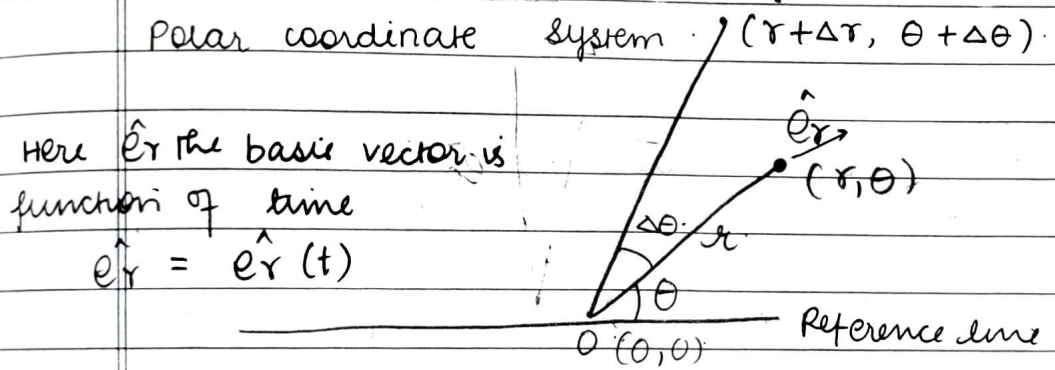 Polar coordinate system.
(r+Δr, θ+Δθ).
Here êr the basis vector is
function of time
êr = êr (t)
êr
(r,θ)
Δθ.
r
θ
Reference line
O (0,0)